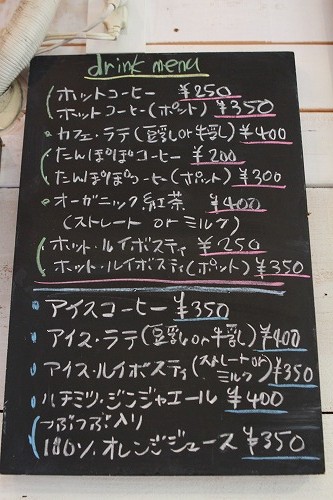 drink menu
ホットコーヒー ¥250
ホットコーヒー(ポット) ¥350
カフェ・ラテ(豆乳or牛乳) ¥400
たんぽぽコーヒー ¥200
たんぽぽコーヒー(ポット) ¥300
オーガニック紅茶 ¥400
(ストレート or ミルク)
ホット・ルイボスティ ¥250
ホット・ルイボスティ(ポット) ¥350
アイスコーヒー ¥350
アイス・ラテ(豆乳or牛乳) ¥400
アイス・ルイボスティ(ストレートorミルク) ¥350
ハチミツ・ジンジャエール ¥400
つぶつぶ入り
100%オレンジジュース ¥350